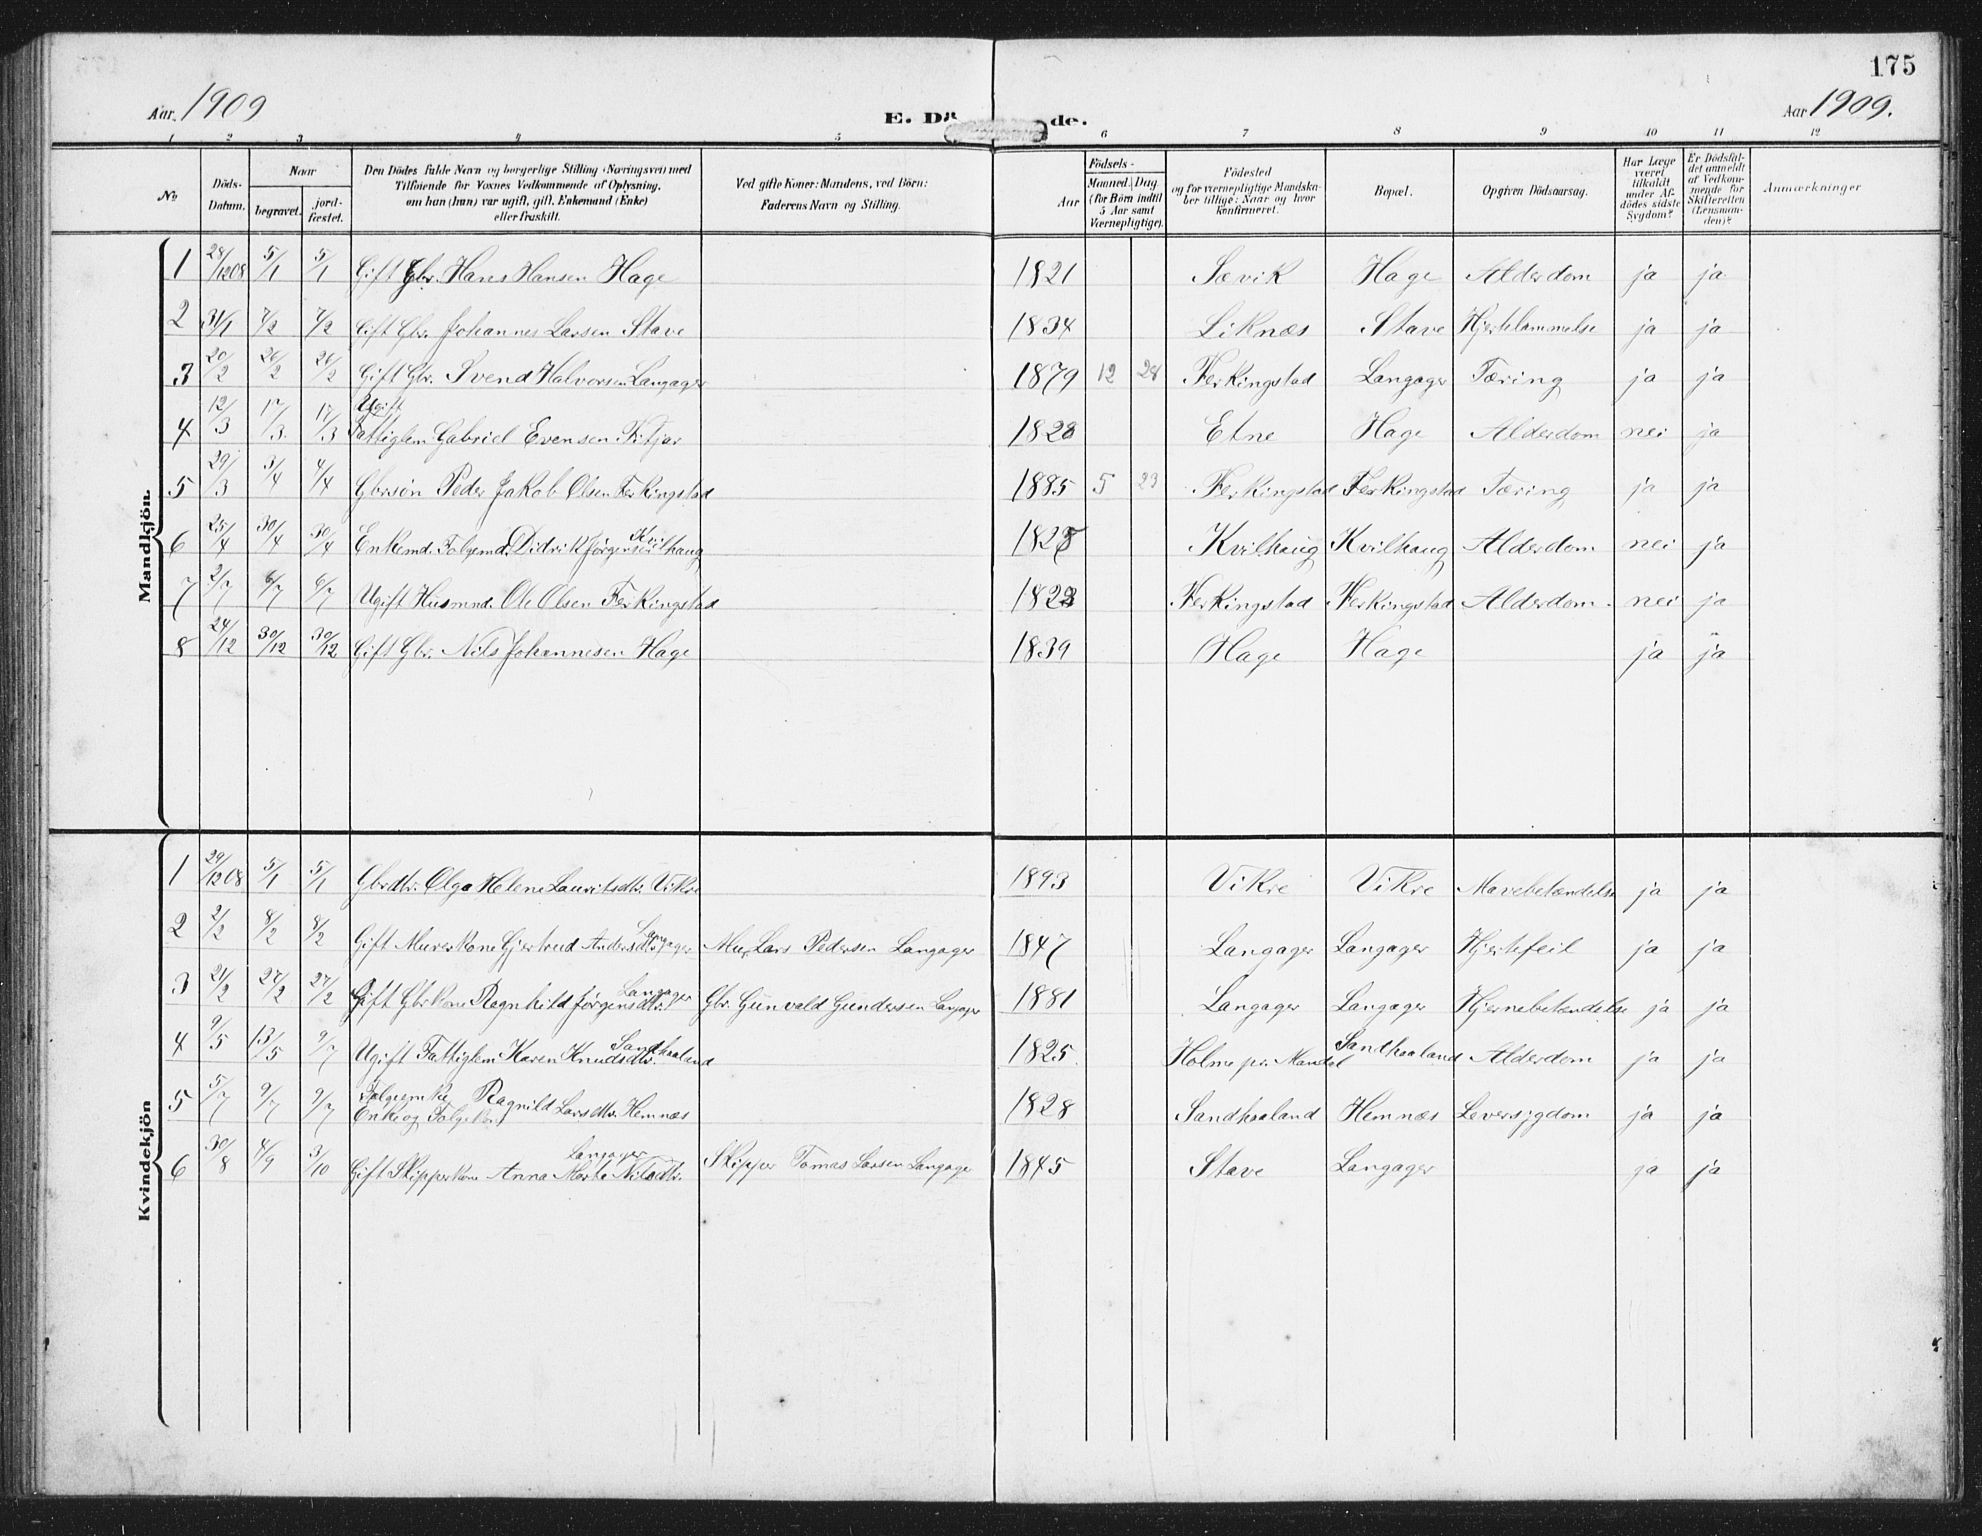 175
Aar. 1909 E. Dö de. Aar 1909.
1 2 3 4 5 6 7 8 9 10 11 12
No Döds-Datum. Naar begravet. jordfæstet. Den Dödes fulde Navn og borgerlige Stilling (Næringsvei) med Tilföiende for Voxnes Vedkommende af Oplysning, om han (hun) var ugift, gift, Enkemand (Enke) eller fraskilt. Ved gifte Koner: Mandens, ved Börn: Faderens Navn og Stilling. Födsels- Aar Maaned. Dag (for Börn indtil 5 Aar samt Værnepligtige). Födested og for værnepligtige Mandskaber tillige: Naar og hvor konfirmeret. Bopæl. Opgiven Dödsaarsag. Har Læge været tilkaldt under Afdödes sidste Sygdom? Er Dödsfaldet anmeldt af Vedkommende for Skifteretten (Lensmanden)? Anmærkninger
Mandkjön.
1 28/1208 5/1 5/1 Gift Gbr. Hans Hansen Hage 1821 Sævik Hage Alderdom ja ja
2 31/1 7/2 7/2 Gift Gbr. Johannes Larsen Stave 1834 Liknæs Stave Hjertelammelse ja ja
3 20/2 26/2 26/2 Gift Gbr. Svend Halvorsen Langager 1879 12 28 Ferkingstad Langager Tæring ja ja
4 12/3 17/3 17/3 Ugift Fattiglem Gabriel Evensen Fitjar 1828 Etne Hage Alderdom nei ja
5 29/3 3/4 4/4 Gbrsøn Peder Jakob Olsen Ferkingstad 1885 5 23 Ferkingstad Ferkingstad Tæring ja ja
6 25/4 30/4 30/4 Enkemd. Folgemd. Didrik Jørgensen Kvilhaug Kvilhaug Kvilhaug Alderdom nei ja
7 2/7 6/7 6/7 Ugift Husmnd. Ole Olsen Ferkingstad Ferkingstad Ferkingstad Alderdom. nei ja
8 24/12 30/12 30/12 Gift Gbr. Nils Johannesen Hage 1839 Hage Hage ja ja
Kvindekjön
1 29/1208 5/1 5/1 Gbrdtr. Olga Helene Lauritsdtr. Vikre 1893 Vikre Vikre Mavebetændelse ja ja
2 2/2 8/2 8/2 Gift Murerkone Gjertrud Andersdtr. Langager Mur. Lars Pedersen Langager 1847 Langager Langager Hjertefeil ja ja
3 21/2 27/2 27/2 Gift Gbrkone Ragnhild Jørgensdtr. Langager Gbr. Gunvald Gundersen Langager 1881 Langager Langager Hjernebetændelse ja ja
4 9/5 13/5 9/7 Ugift Fattiglem Karen Knudsdtr. Sandhaaland 1825. Holme pr. Mandal Sandhaaland Alderdom ja ja
5 5/7 9/7 9/7 Folgeenke Ragnild Larsdtr. Hemnæs
Enke og 1828 Sandhaaland Hemnæs Leversygdom ja ja
6 30/8 4/9 3/10 Gift Skipperkone Anna Marta Nilsdtr. Langager Skipper Tomas Larsen Langager 1845 Stave Langager ja ja